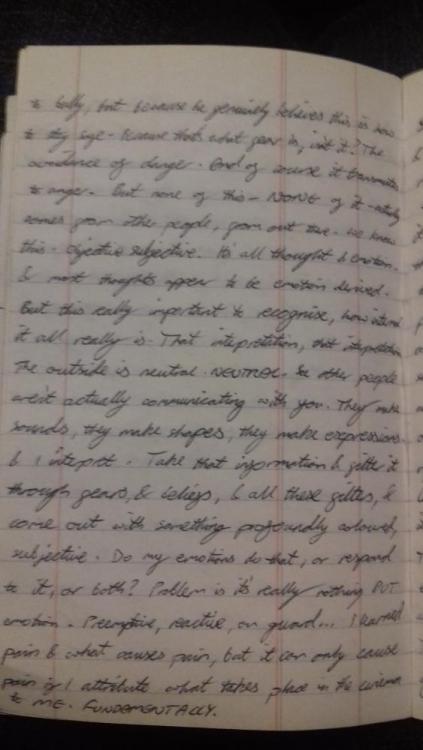 to bully, but because he genuinely believes this is how
to stay safe - because that's what fear is, isn't it? The
avoidance of danger. And of course it transmutes
to anger. But none of this - NONE of it - actually
comes from other people, from out there. We know
this - objective subjective. It's all thought & emotion.
& most thoughts appear to be emotion derived.
But this really important to recognise, how internal
it all really is. That intepretation, that intepretation
The outside is neutral. NEUTRAL. So other people
aren't actually communicating with you. They make
sounds, they make shapes, they make expressions
& I intepret. Take that information & filter it
through fears, & beliefs, & all these filters, &
come out with something profoundly coloured,
subjective. Do my emotions do that, or respond
to it, or both? Problem is it's really nothing BUT
emotion. Preemptive, reactive, on guard... I learned
pain & what causes pain, but it can only cause
pain if I attribute what takes place in the cinema
to ME. FUNDEMENTALLY.